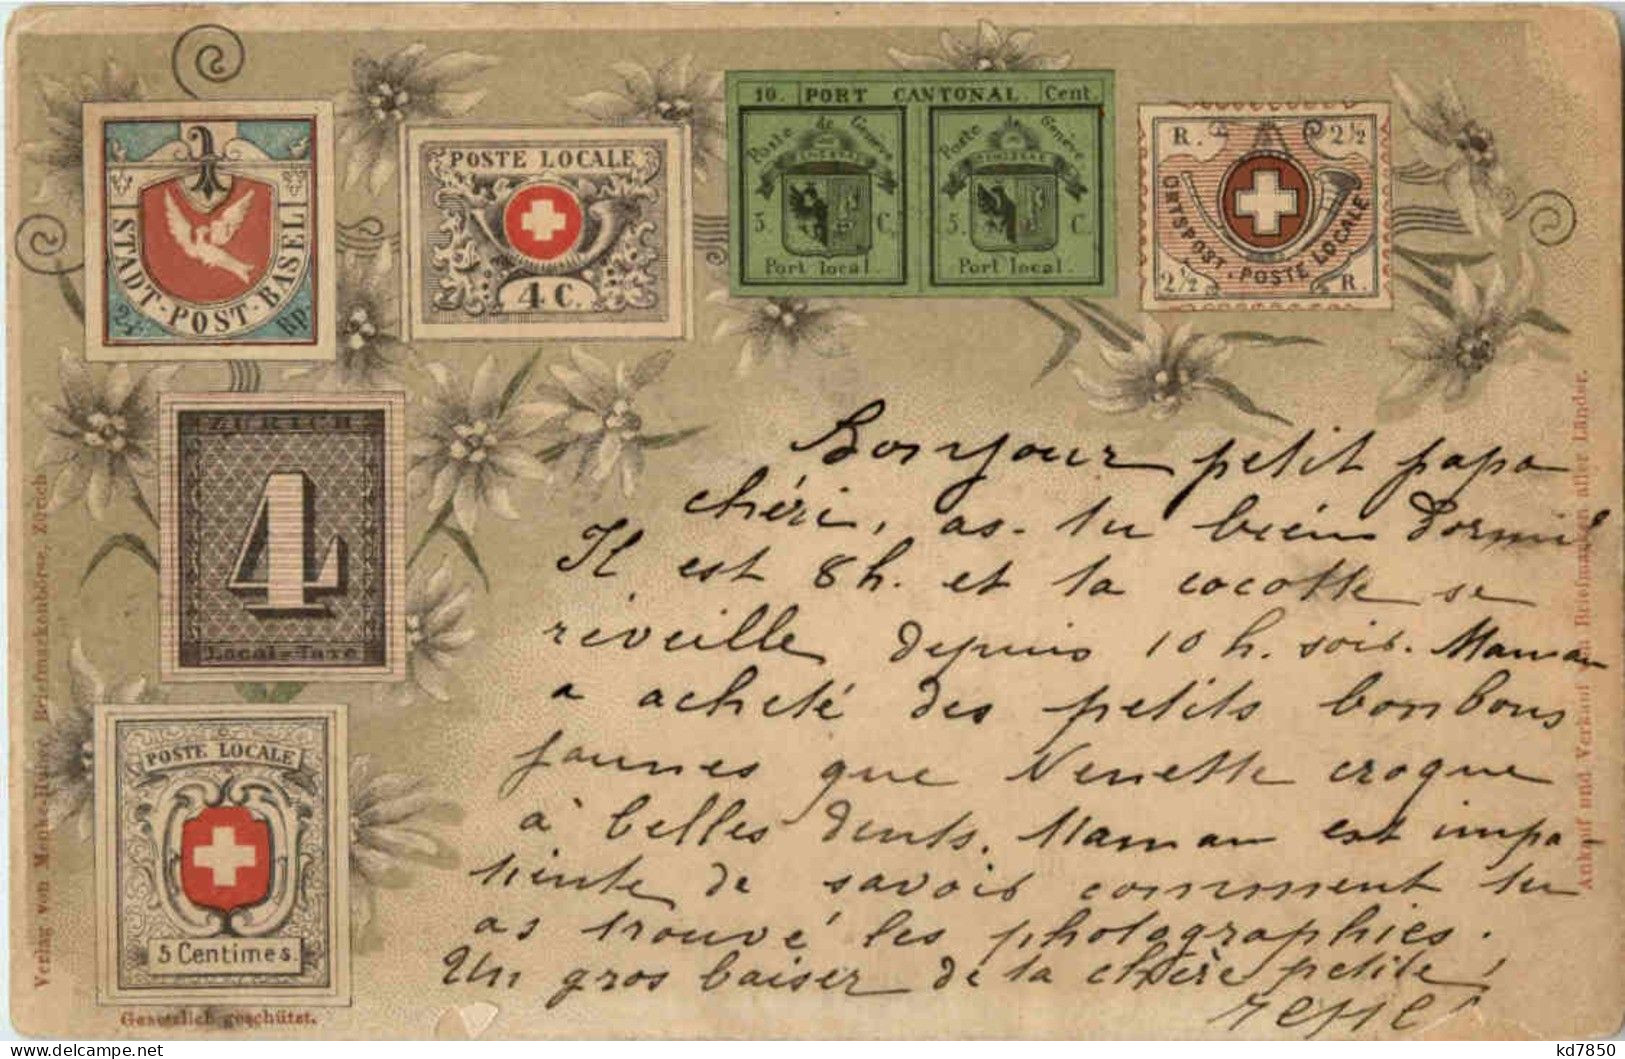 STADT-POST-BASEL
2½ Rp.
POSTE LOCALE
4 C.
10. PORT CANTONAL. Cent.
Poste de Genève
5 C.
Port local.
Poste de Genève
5 C.
Port local.
R. 2½
ORTSPOST. POSTE LOCALE
2½ R.
ZÜRICH
4
Local-Taxe
POSTE LOCALE
5 Centimes.
Verlag von Menke-Huber, Briefmarkenbörse, Zürich
Gesetzlich geschützt.
Ankauf und Verkauf von Briefmarken aller Länder.
Bonjour petit papa
chéri, as-tu bien dormi
Il est 8 h. et ta cocotte se
réveille depuis 10 h. soir. Maman
a acheté des petits bonbons
jaunes que Nenette croque
à belles dents. Maman est impa
tiente de savoir comment tu
as trouvé les photographies.
Un gros baiser de ta chère petite!
kd7850